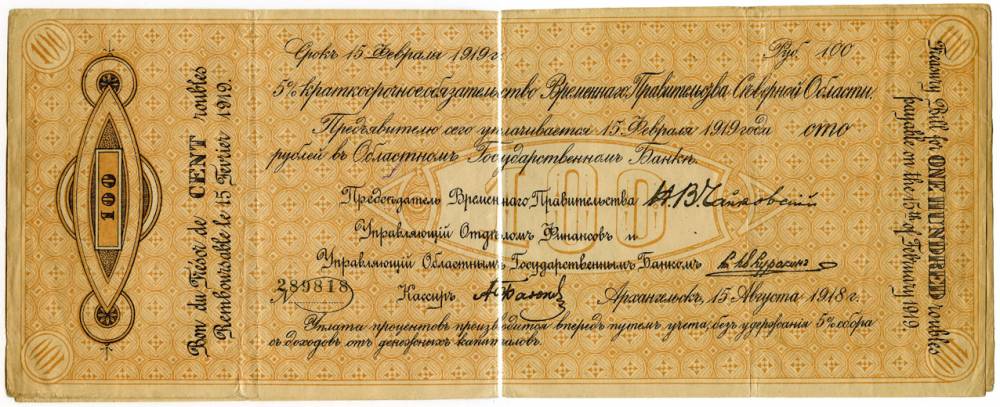 100
100
Bon du Trésor de CENT roubles
Remboursable le 15 Fevrier 1919.
Срокъ 15 Февраля 1919 г.
Руб. 100
5% краткосрочное обязательство Временнаго Правительства Сѣверной Области.
Предъявителю сего уплачивается 15 Февраля 1919 года сто
рублей въ Областномъ Государственномъ Банкѣ.
100
Предсѣдатель Временнаго Правительства Н.В. Чайковскій
Управляющій Отдѣломъ Финансовъ и
Управляющій Областнымъ Государственнымъ Банкомъ Куракинъ
№ 289818
Кассиръ
Архангельскъ, 15 Августа 1918 г.
Уплата процентовъ производится впередъ путемъ учета, безъ удержанія 5% сбора
съ доходовъ отъ денежныхъ капиталовъ.
Treasury Bill for ONE HUNDRED roubles
payable on the 15th of February 1919.
100
100
100